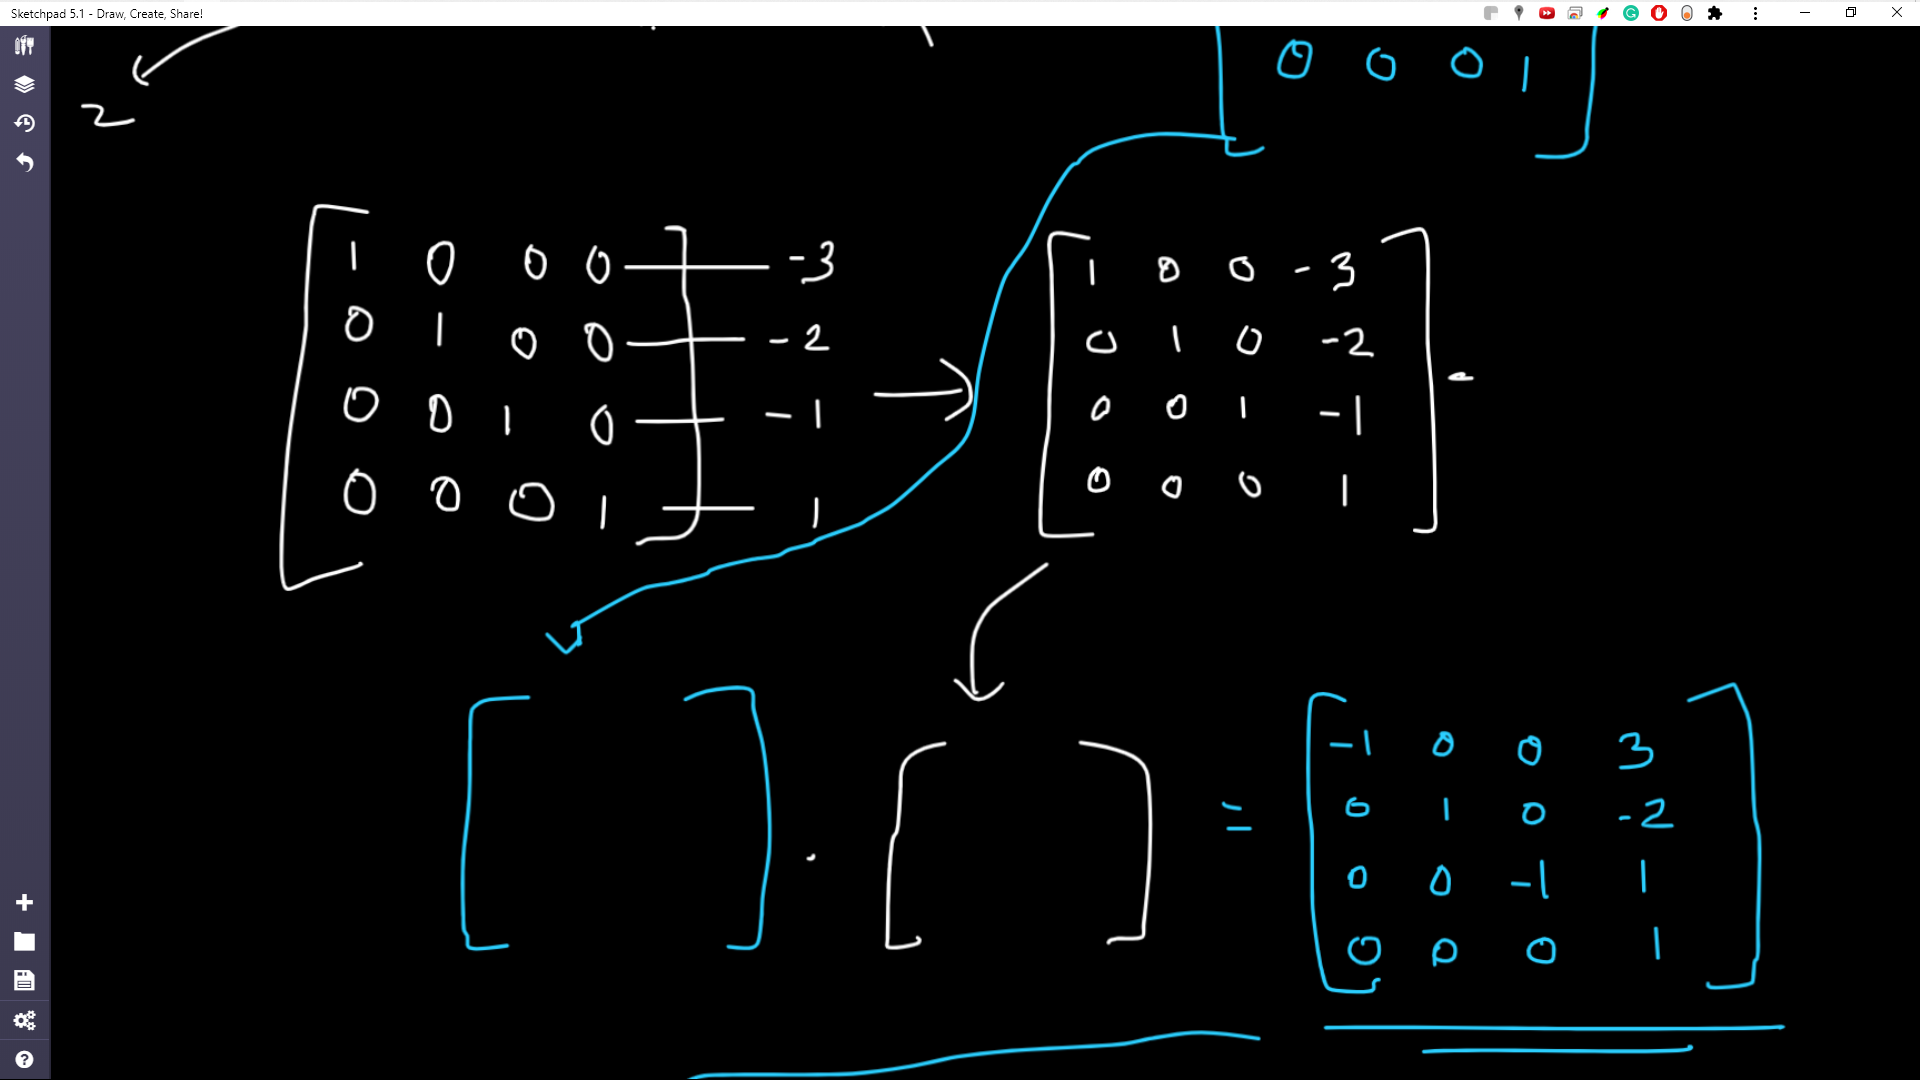 Sketchpad 5.1 - Draw, Create, Share!
0 0 0 1
2
1 0 0 0 -3
0 1 0 0 -2
0 0 1 0 -1
0 0 0 1 1
1 0 0 -3
0 1 0 -2
0 0 1 -1
0 0 0 1
=
-1 0 0 3
0 1 0 -2
0 0 -1 1
0 0 0 1